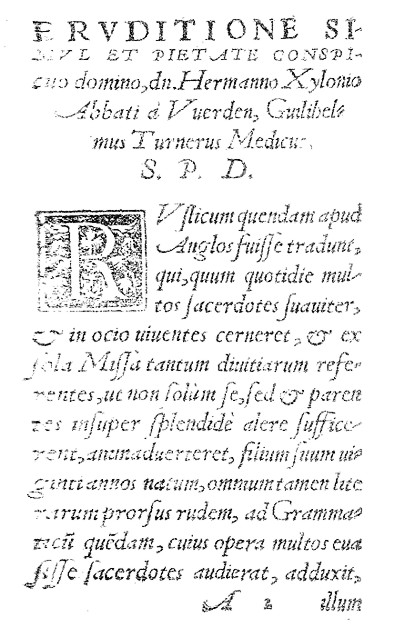 ERVDITIONE SI-
MVL ET PIETATE CONSPI-
cuo domino, dn. Hermanno Xylonio
Abbati à Vuerden, Guilihel-
mus Turnerus Medicus,
S. P. D.
RVsticum quendam apud
Anglos fuisse tradunt,
qui, quum quotidie mul-
tos sacerdotes suauiter,
& in ocio uiuentes cerneret, & ex
sola Missa tantum diuitiarum refe-
rentes, ut non solùm se, sed & paren
tes insuper splendidè alere suffice-
rent, animaduerteret, filium suum uig
ginti annos natum, omnium tamen lite
rarum prorsus rudem, ad Gramma-
ticũ quẽdam, cuius opera multos eua
sisse sacerdotes audierat, adduxit,
A 2 illum